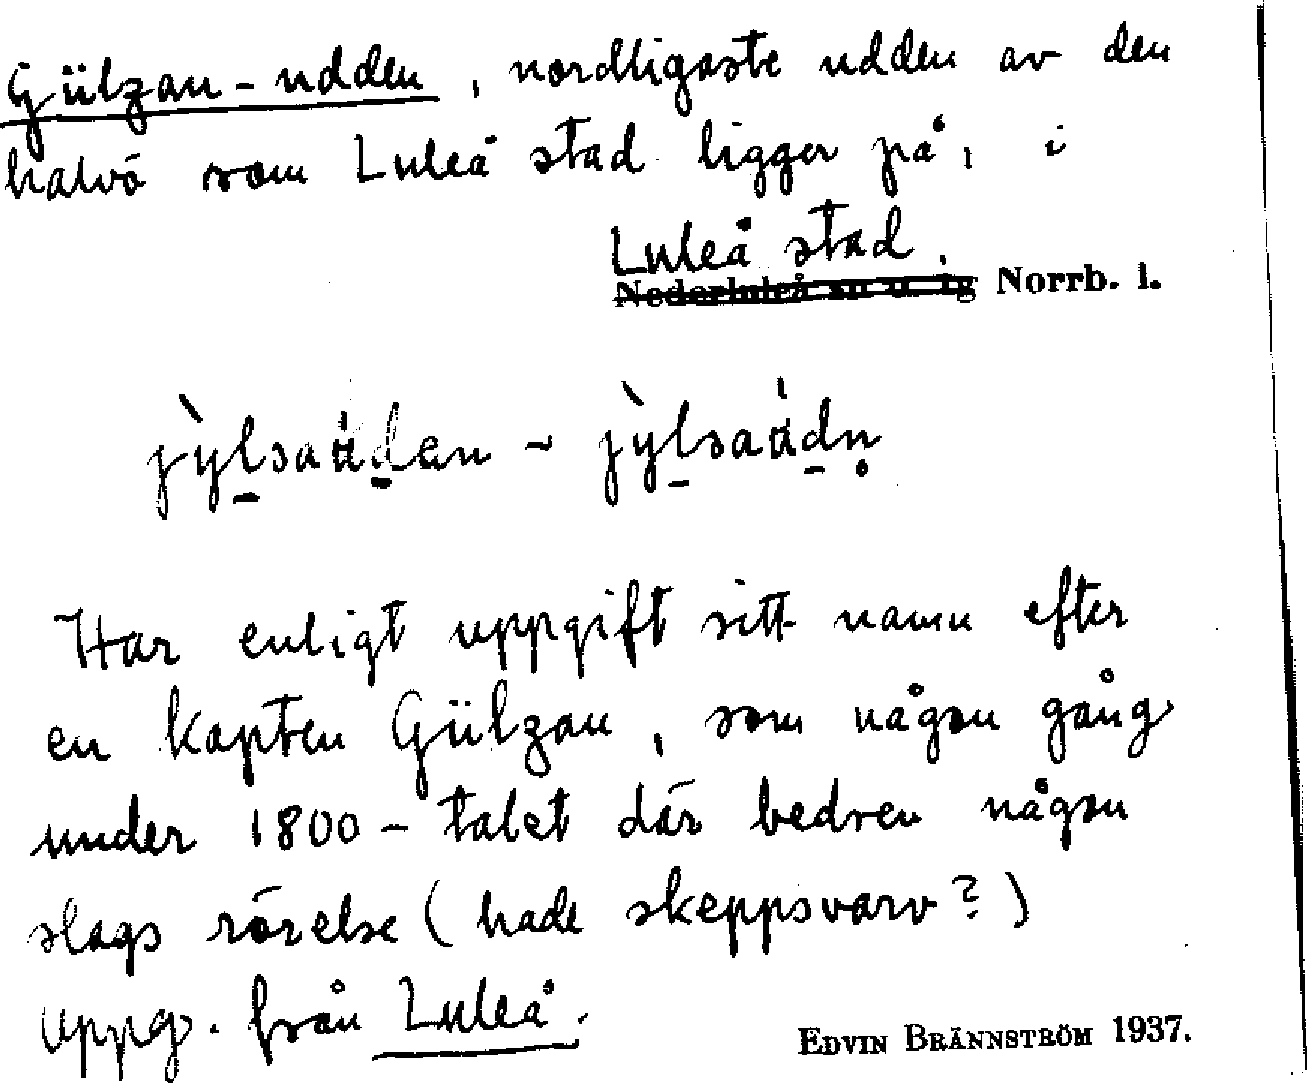 Gülzau-udden, nordligaste udden av den
halvö som Luleå stad ligger på, i
Luleå stad.
Nederluleå sn o. tg Norrb. l.
Har enligt uppgift sitt namn efter
en kapten Gülzau, som någon gång
under 1800-talet där bedrev någon
slags rörelse (hade skeppsvarv?)
Uppg. från Luleå.
EDVIN BRÄNNSTRÖM 1937.